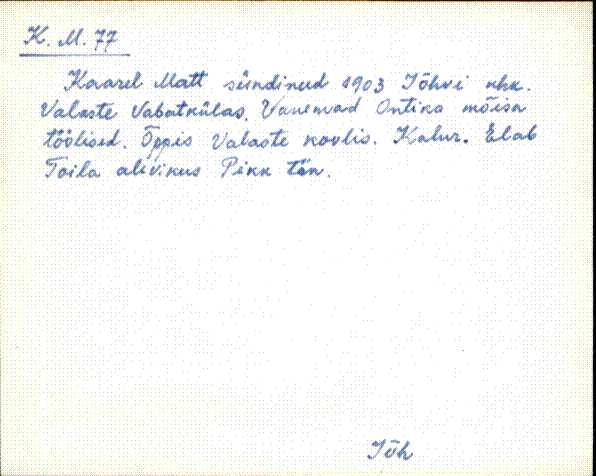 K. M. 77
Kaarel Matt sündinud 1903 Jõhvi khk.
Valaste Vabatkülas. Vanemad Ontika mõisa
töölised. Õppis Valaste koolis. Kalur. Elab
Toila alevikus Pikk tän.
Jõh